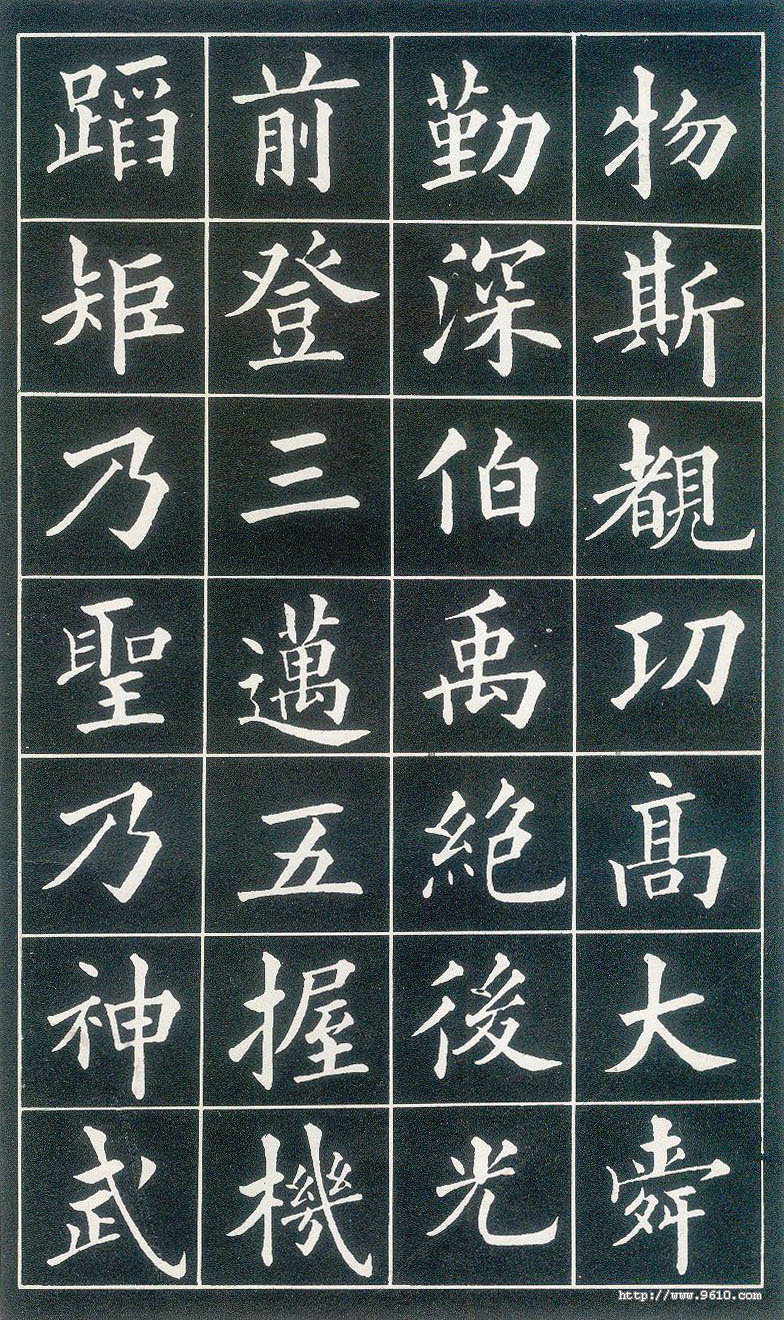 物斯覩功高大舜
勤深伯禹絶後光
前登三邁五握機
蹈矩乃聖乃神武
http://www.9610.com